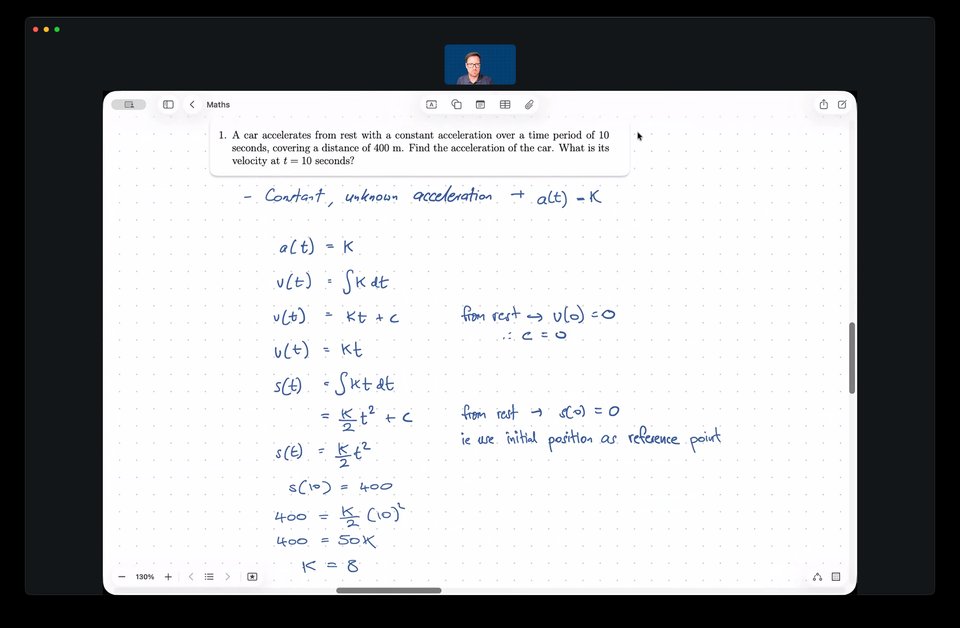 Maths
1. A car accelerates from rest with a constant acceleration over a time period of 10
seconds, covering a distance of 400 m. Find the acceleration of the car. What is its
velocity at t = 10 seconds?
- Constant, unknown acceleration → a(t) = K
a(t) = K
v(t) = ∫K dt
v(t) = Kt + c
from rest → v(0) = 0
∴ c = 0
v(t) = Kt
s(t) = ∫Kt dt
= K/2 t² + c
from rest → s(0) = 0
ie use initial position as reference point
s(t) = K/2 t²
s(10) = 400
400 = K/2 (10)²
400 = 50K
K = 8
130%